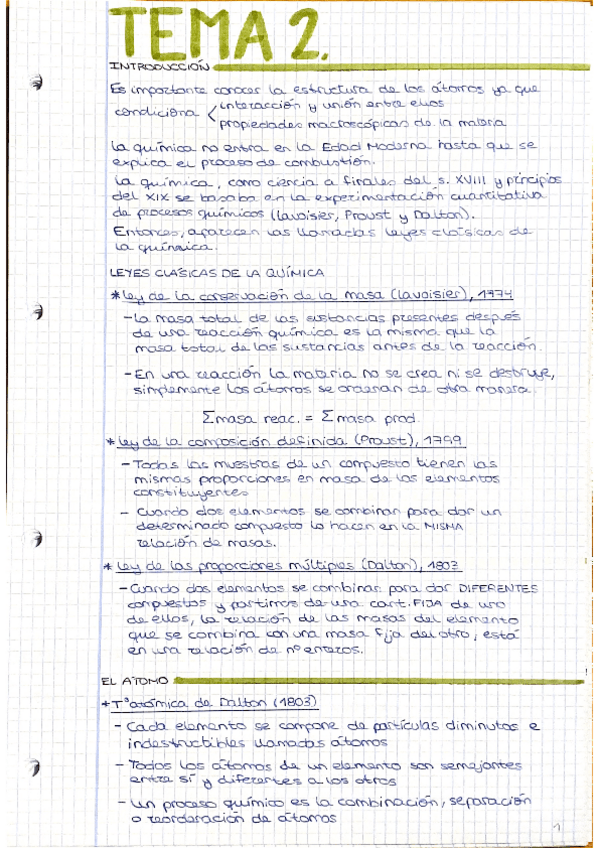 TEMA 2.
INTRODUCCIÓN
Es importante conocer la estructura de los átomos ya que
condiciona < interacción y unión entre ellos
propiedades macroscópicas de la materia
La química no entra en la Edad Moderna hasta que se
explica el proceso de combustión.
La química, como ciencia a finales del s. XVIII y principios
del XIX se basaba en la experimentación cuantitativa
de procesos químicos (Lavoisier, Proust y Dalton).
Entonces, aparecen las llamadas leyes clásicas de
la química.
LEYES CLÁSICAS DE LA QUÍMICA
* Ley de la conservación de la masa (Lavoisier), 1774
- La masa total de las sustancias presentes después
de una reacción química es la misma que la
masa total de las sustancias antes de la reacción.
- En una reacción la materia no se crea ni se destruye,
simplemente los átomos se ordenan de otra manera.
Σmasa reac. = Σmasa prod.
* Ley de la composición definida (Proust), 1799
- Todas las muestras de un compuesto tienen las
mismas proporciones en masa de los elementos
constituyentes
- Cuando dos elementos se combinan para dar un
determinado compuesto lo hacen en la MISMA
relación de masas.
* Ley de las proporciones múltiples (Dalton), 1803
- Cuando dos elementos se combinan para dar DIFERENTES
compuestos y partimos de una cant. FIJA de uno
de ellos, la relación de las masas del elemento
que se combina con una masa fija del otro, está
en una relación de nº enteros.
EL ÁTOMO
* Tª atómica de Dalton (1803)
- Cada elemento se compone de partículas diminutas e
indestructibles llamadas átomos
- Todos los átomos de un elemento son semejantes
entre sí y diferentes a los otros
- Un proceso químico es la combinación, separación
o reordenación de átomos
1